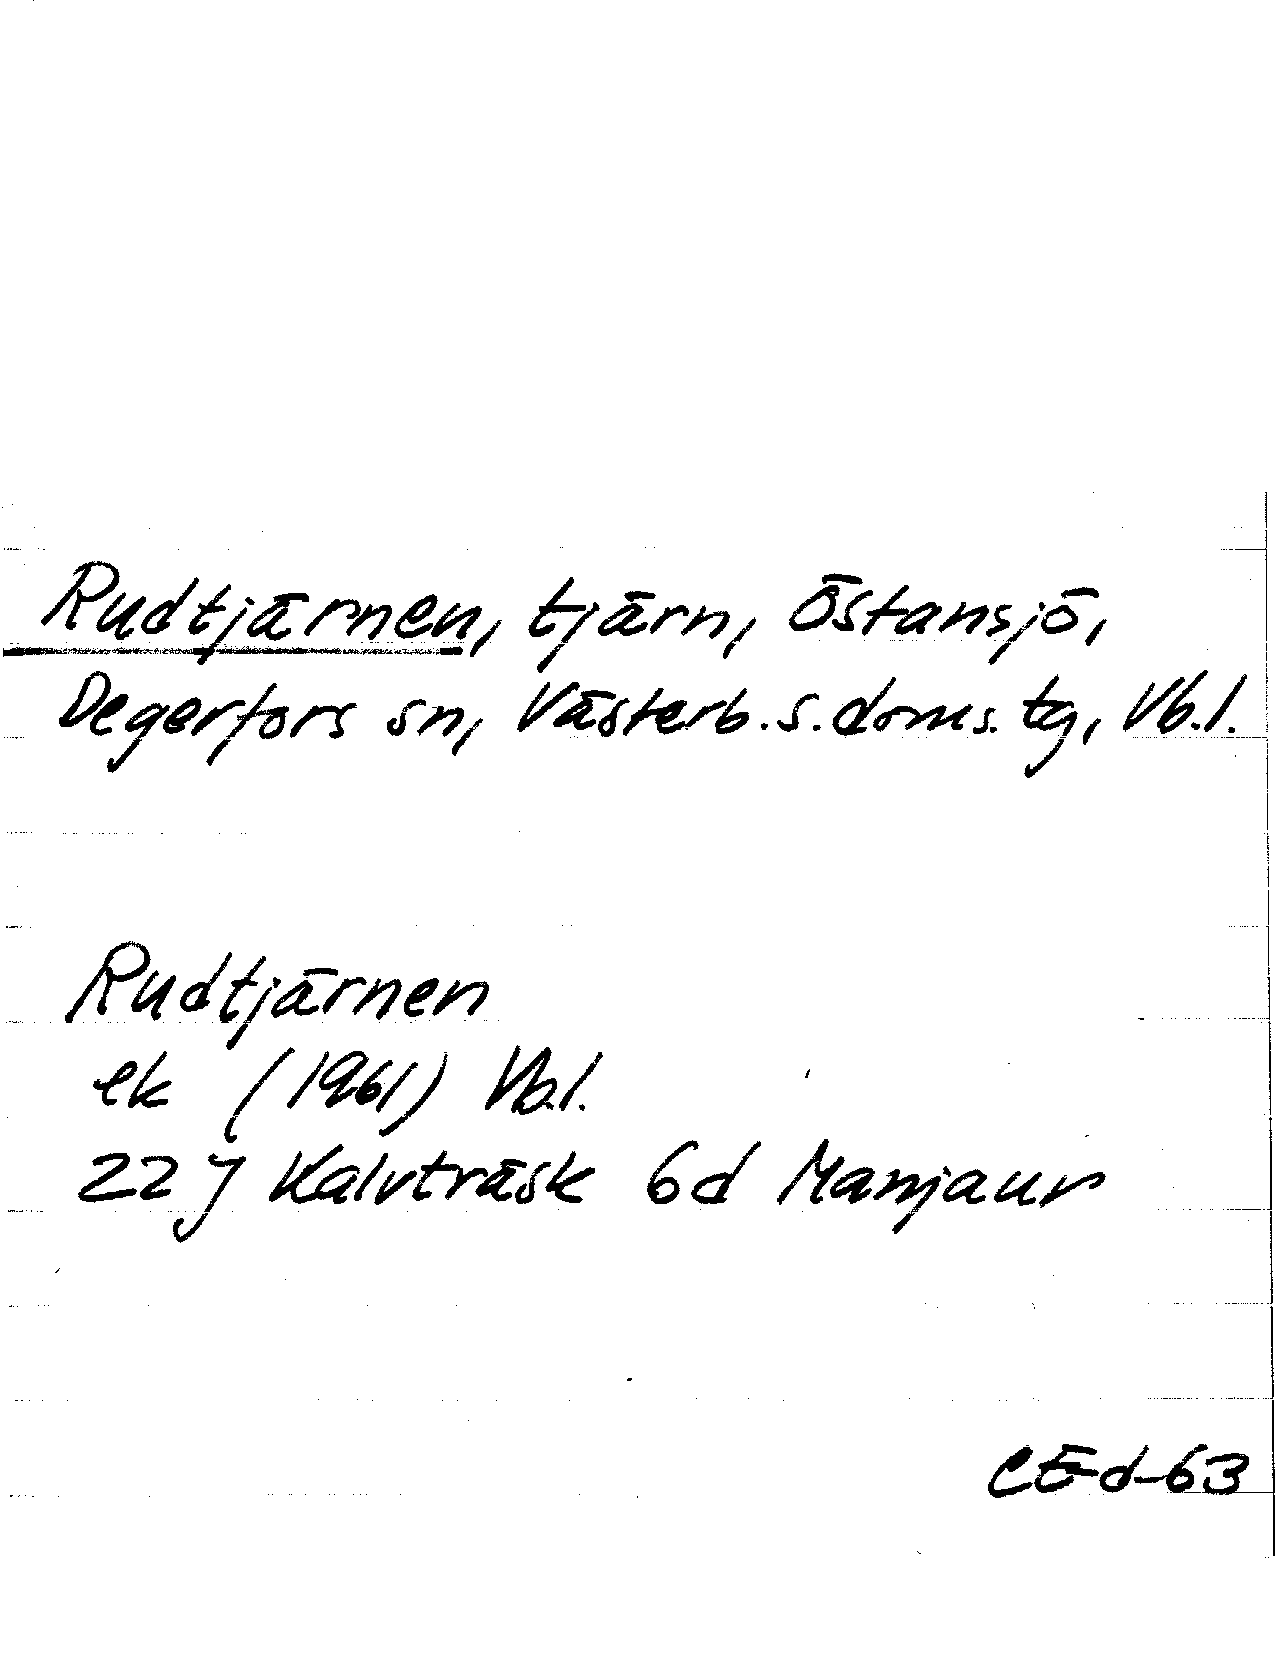 Rudtjärnen, tjärn, Östansjö,
Degerfors sn, Västerb. s. doms. tg, Vb. l.
Rudtjärnen
ek (1961) Vb.l.
22 J Kalvträsk 6d Manjaur
CEd-63